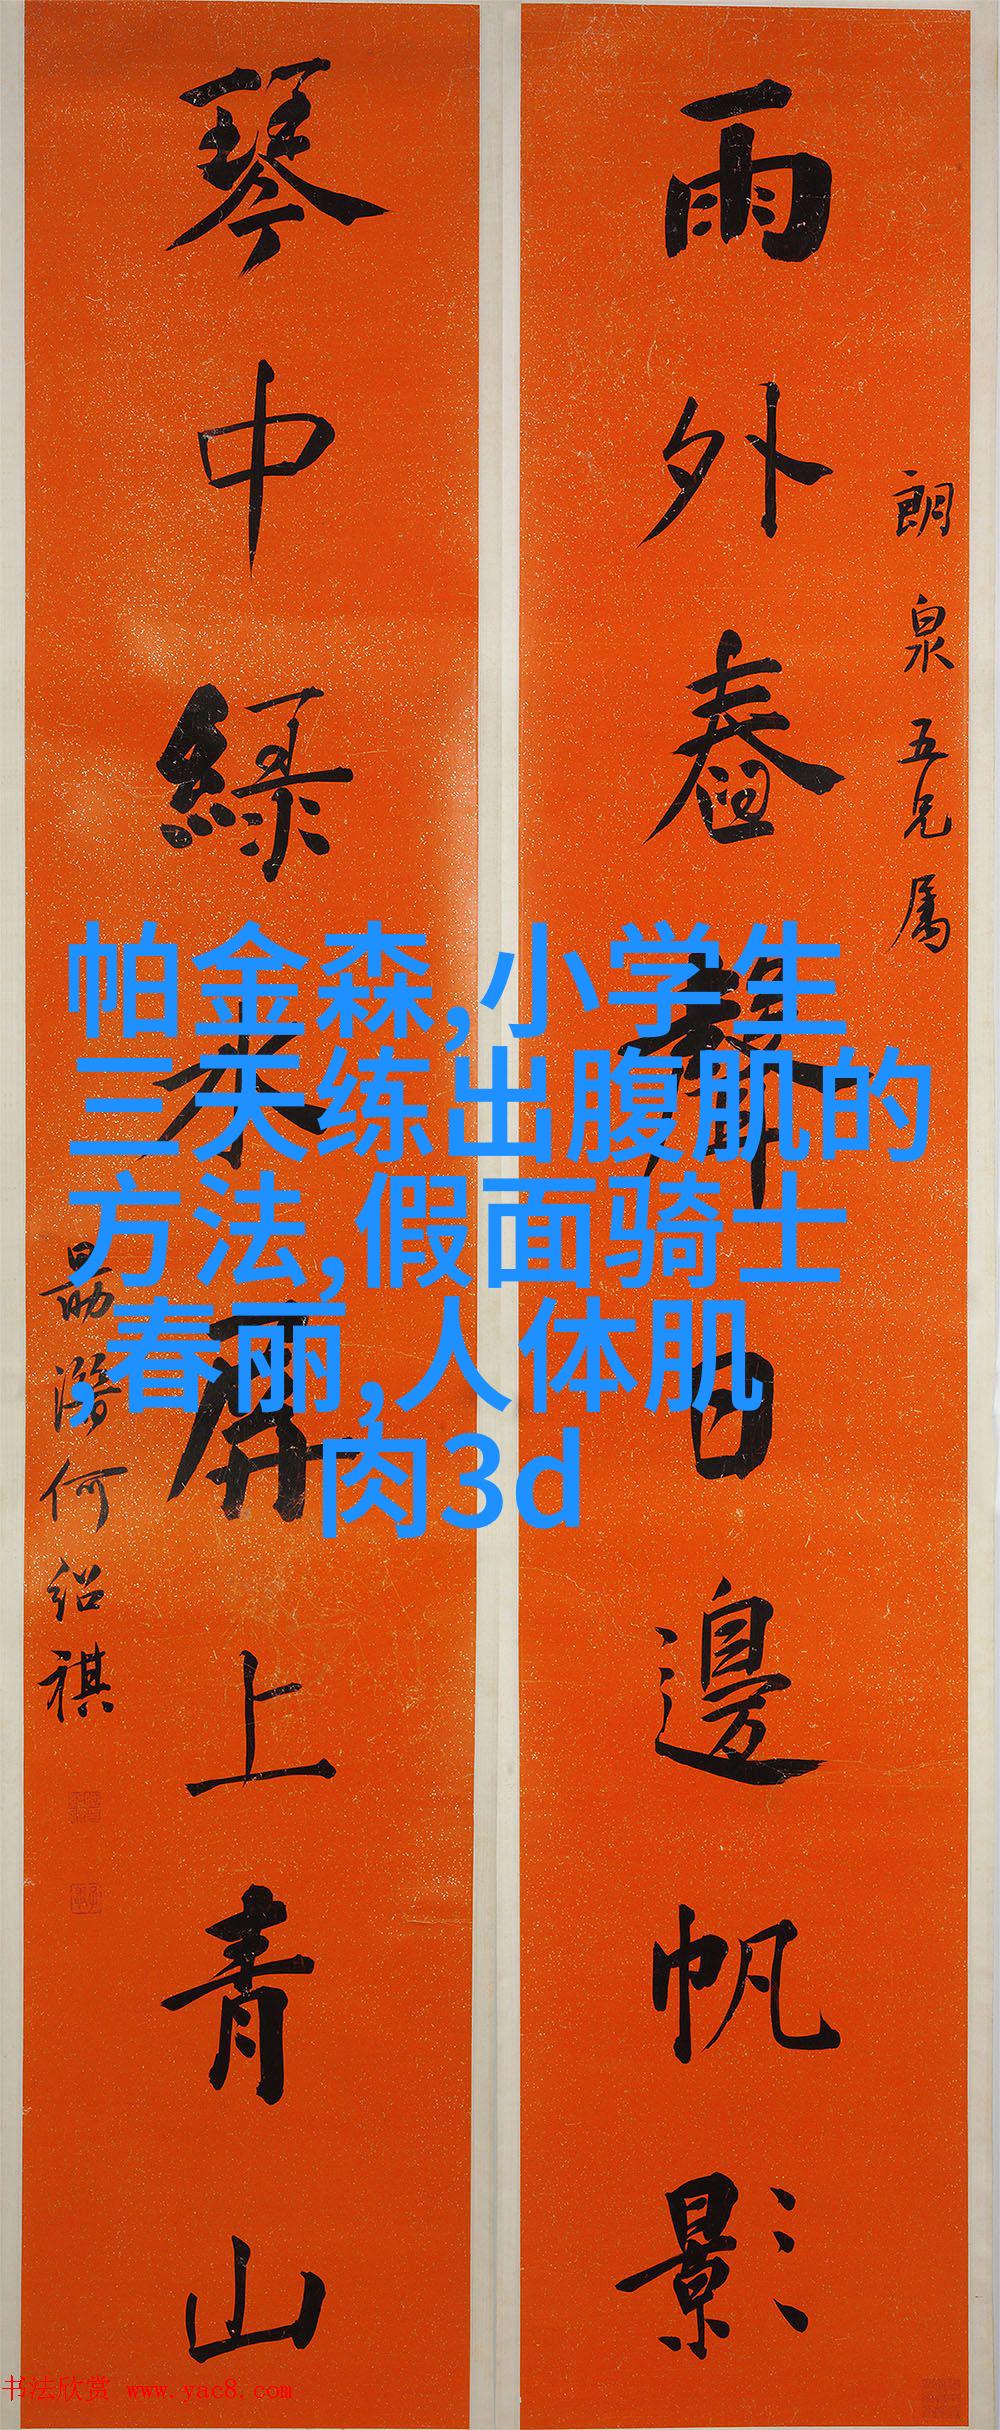 雨外舂聲日邊帆影
朗泉五兄属
琴中綠水屏上青山
勗潛何紹祺
帕金森,小学生
三天练出腹肌的
方法,假面骑士
,春丽,人体肌
肉3d
书法欣赏 www.yac8.com